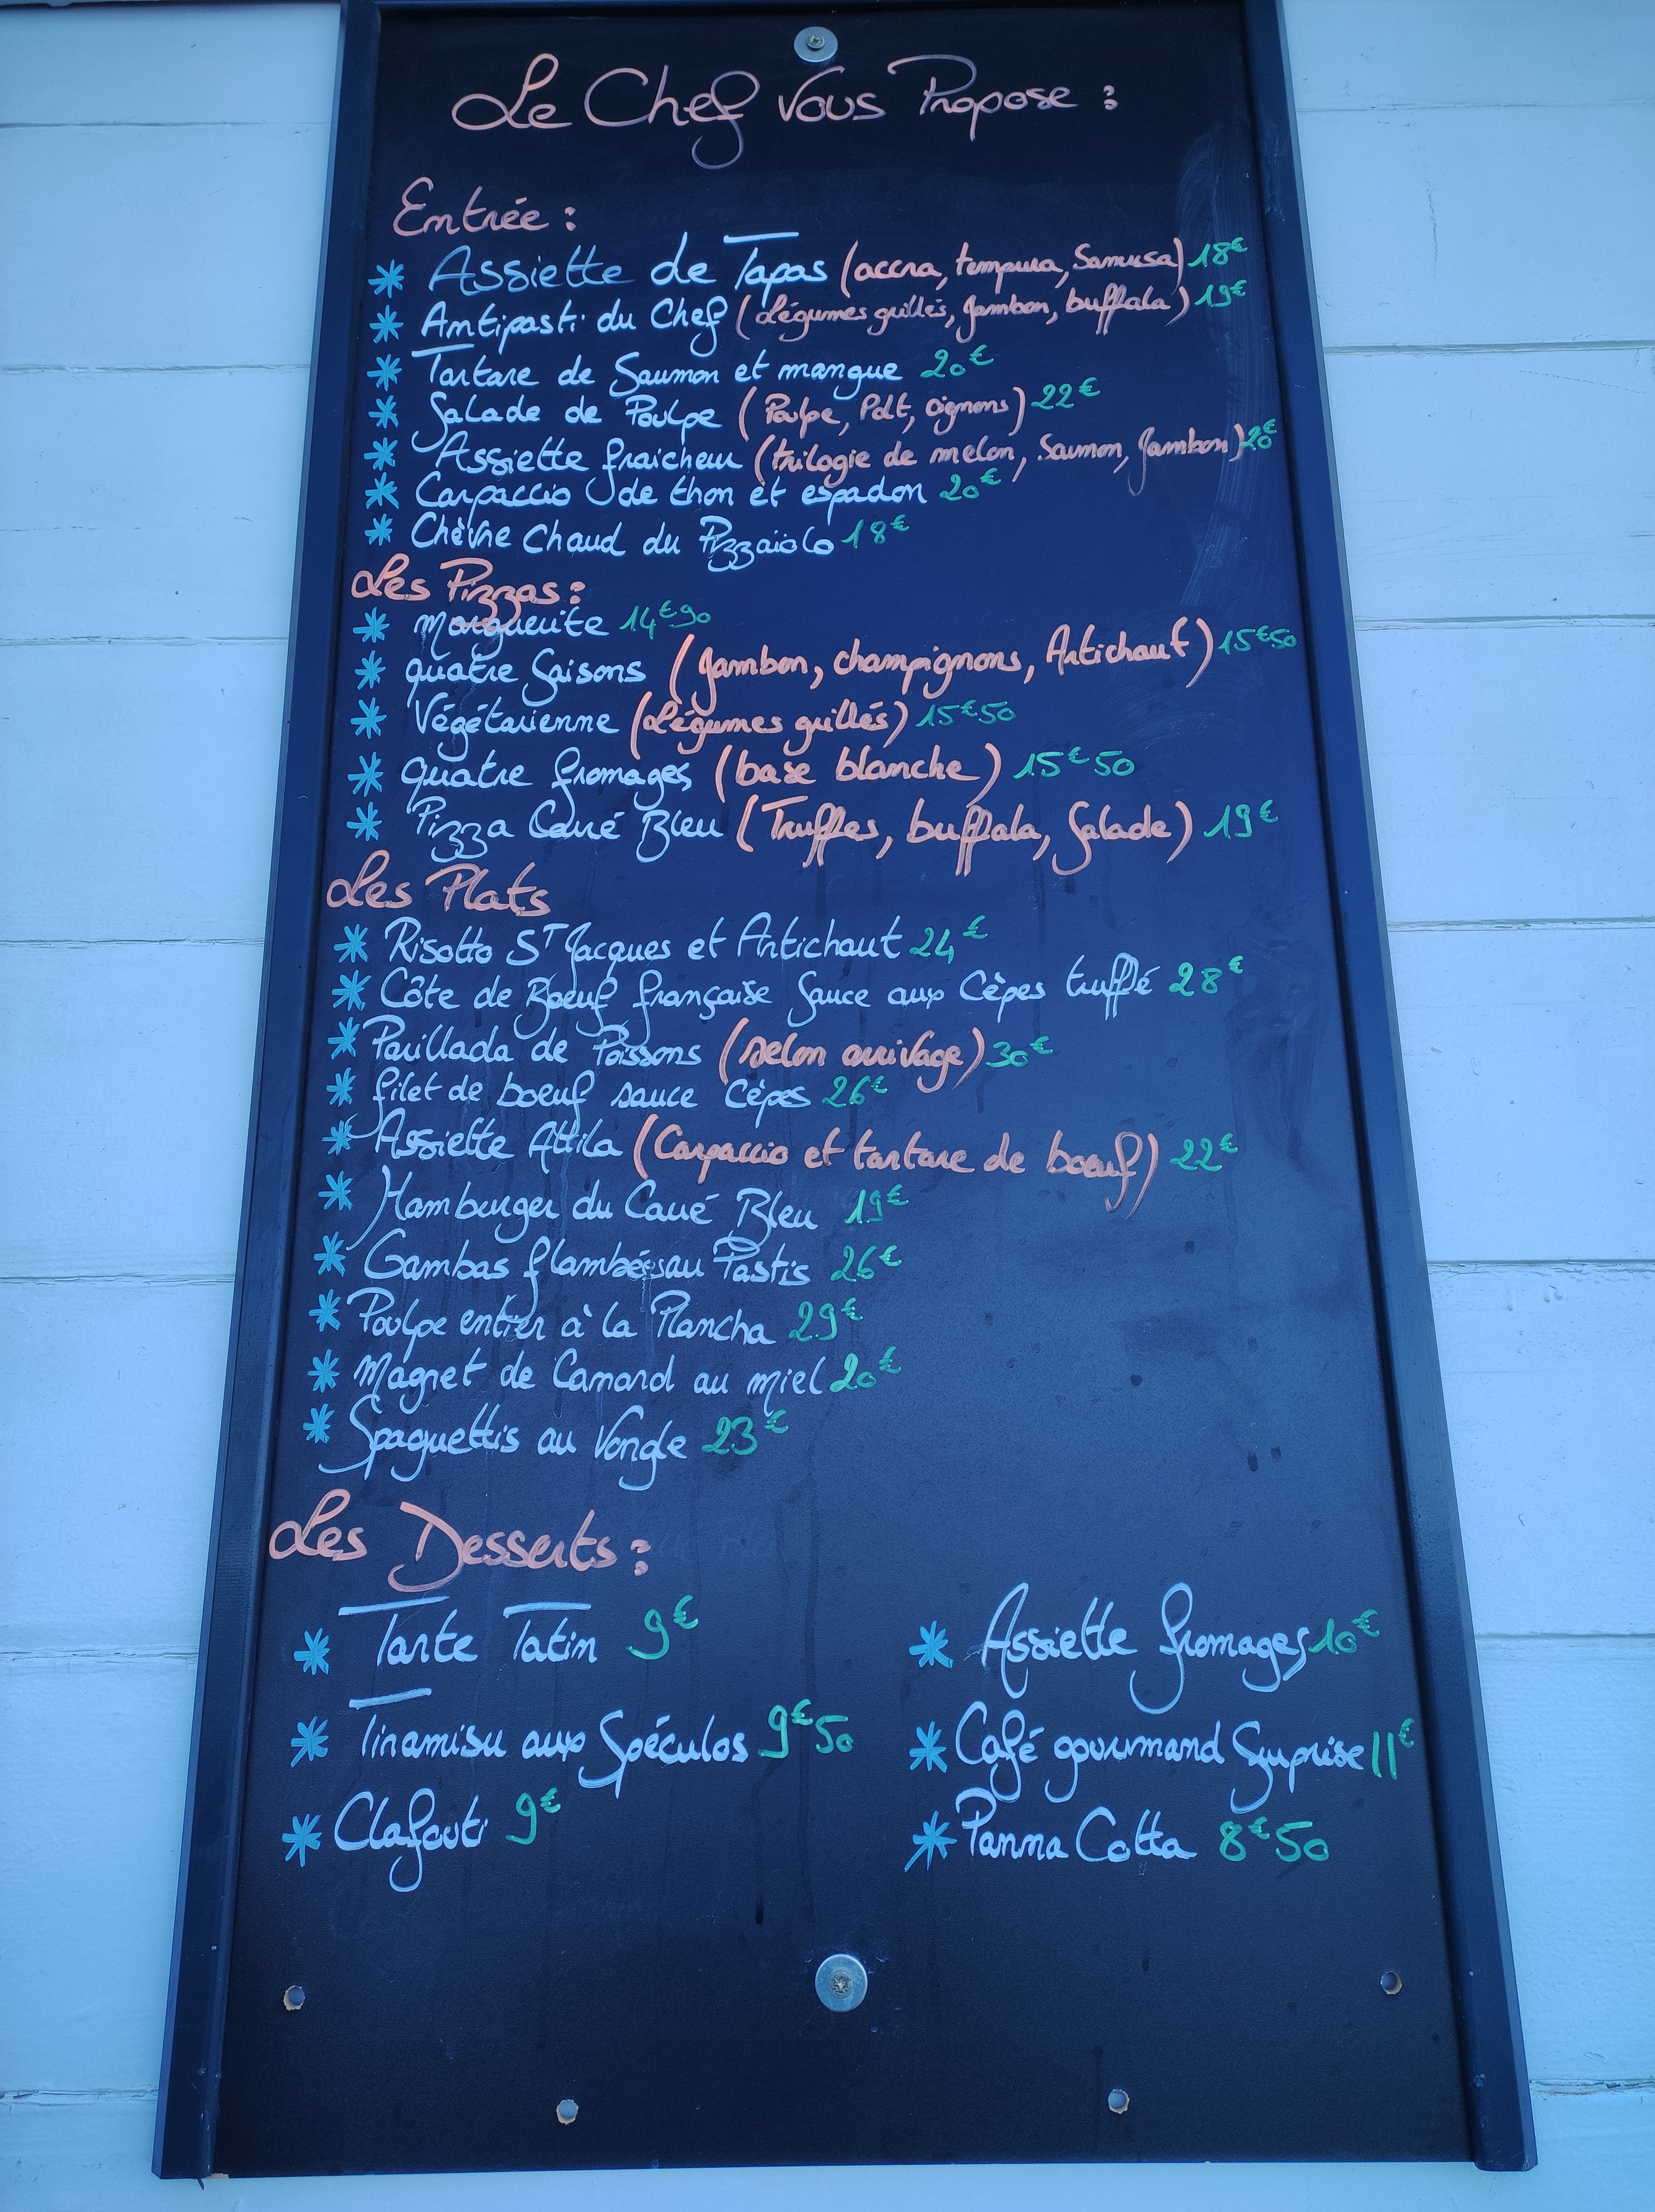 Le Chef Vous Propose :
Entrée :
* Assiette de Tapas (accra, tempura, Samusa) 18€
* Antipasti du Chef (Légumes grillés, Jambon, buffala) 19€
* Tartare de Saumon et mangue 20€
* Salade de Poulpe (Poulpe, Pdt, oignons) 22€
* Assiette fraicheur (trilogie de melon, Saumon, Jambon) 20€
* Carpaccio de thon et espadon 20€
* Chèvre Chaud du Pizzaïolo 18€
Les Pizzas :
* Marguerite 14€90
* quatre Saisons (Jambon, champignons, Artichaut) 15€50
* Végétarienne (Légumes grillés) 15€50
* quatre fromages (base blanche) 15€50
* Pizza Carré Bleu (Truffes, buffala, Salade) 19€
Les Plats
* Risotto ST Jacques et Artichaut 24€
* Côte de Boeuf française Sauce aux Cèpes truffé 28€
* Parillada de Poissons (selon arrivage) 30€
* filet de boeuf sauce Cèpes 26€
* Assiette Attila (Carpaccio et tartare de boeuf) 22€
* Hamburger du Carré Bleu 19€
* Gambas flambées au Pastis 26€
* Poulpe entier à la Plancha 29€
* Magret de Canard au miel 20€
* Spaguettis au Vongle 23€
Les Desserts :
* Tarte Tatin 9€
* Tiramisu aux Spéculos 9€50
* Clafouti 9€
* Assiette fromages 10€
* Café gourmand Surprise 11€
* Panna Cotta 8€50